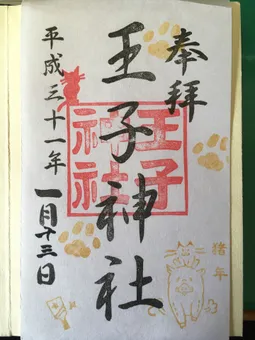 奉拝
王子神社
王子
神社
平成三十一年
一月十三日
猪年